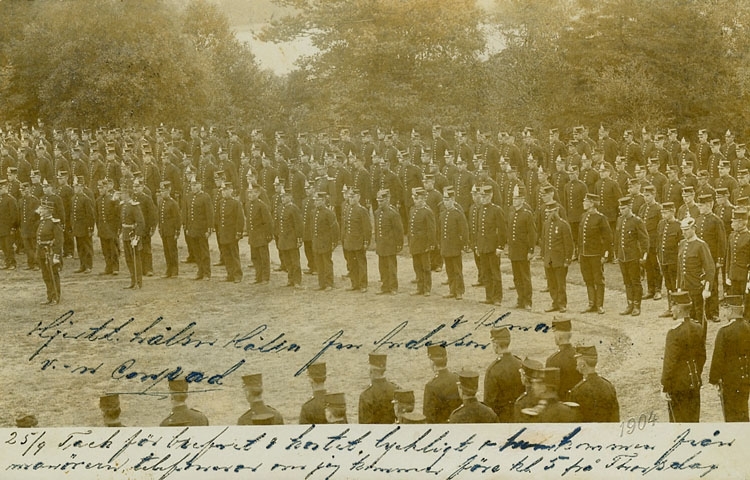 Hjertl. hälsn Hälsn fru Anderson & Alma
v-n Conrad
1904
25/9 Tack för brefvet & kortet, lyckligt hemkommen från
manövern, telefonerar om jag kommer före kl. 5 på Thorsdag